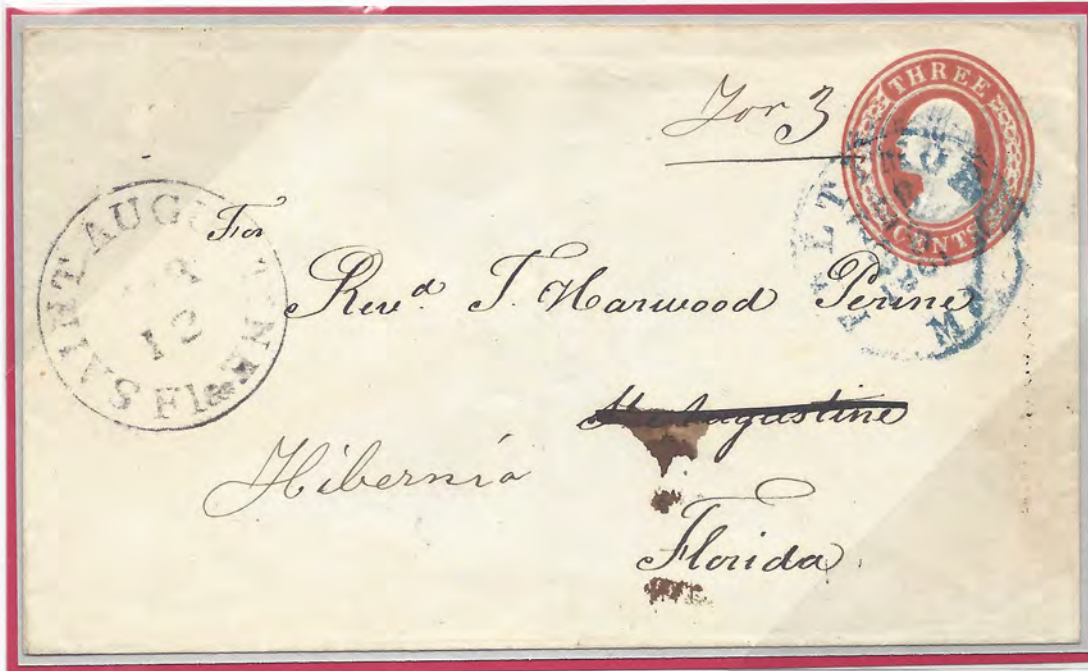 For 3
THREE
CENTS
SAINT AUGUSTINE
12
Fla
For
Revd J. Harwood Perine
St Augustine
Hibernia
Florida
Md